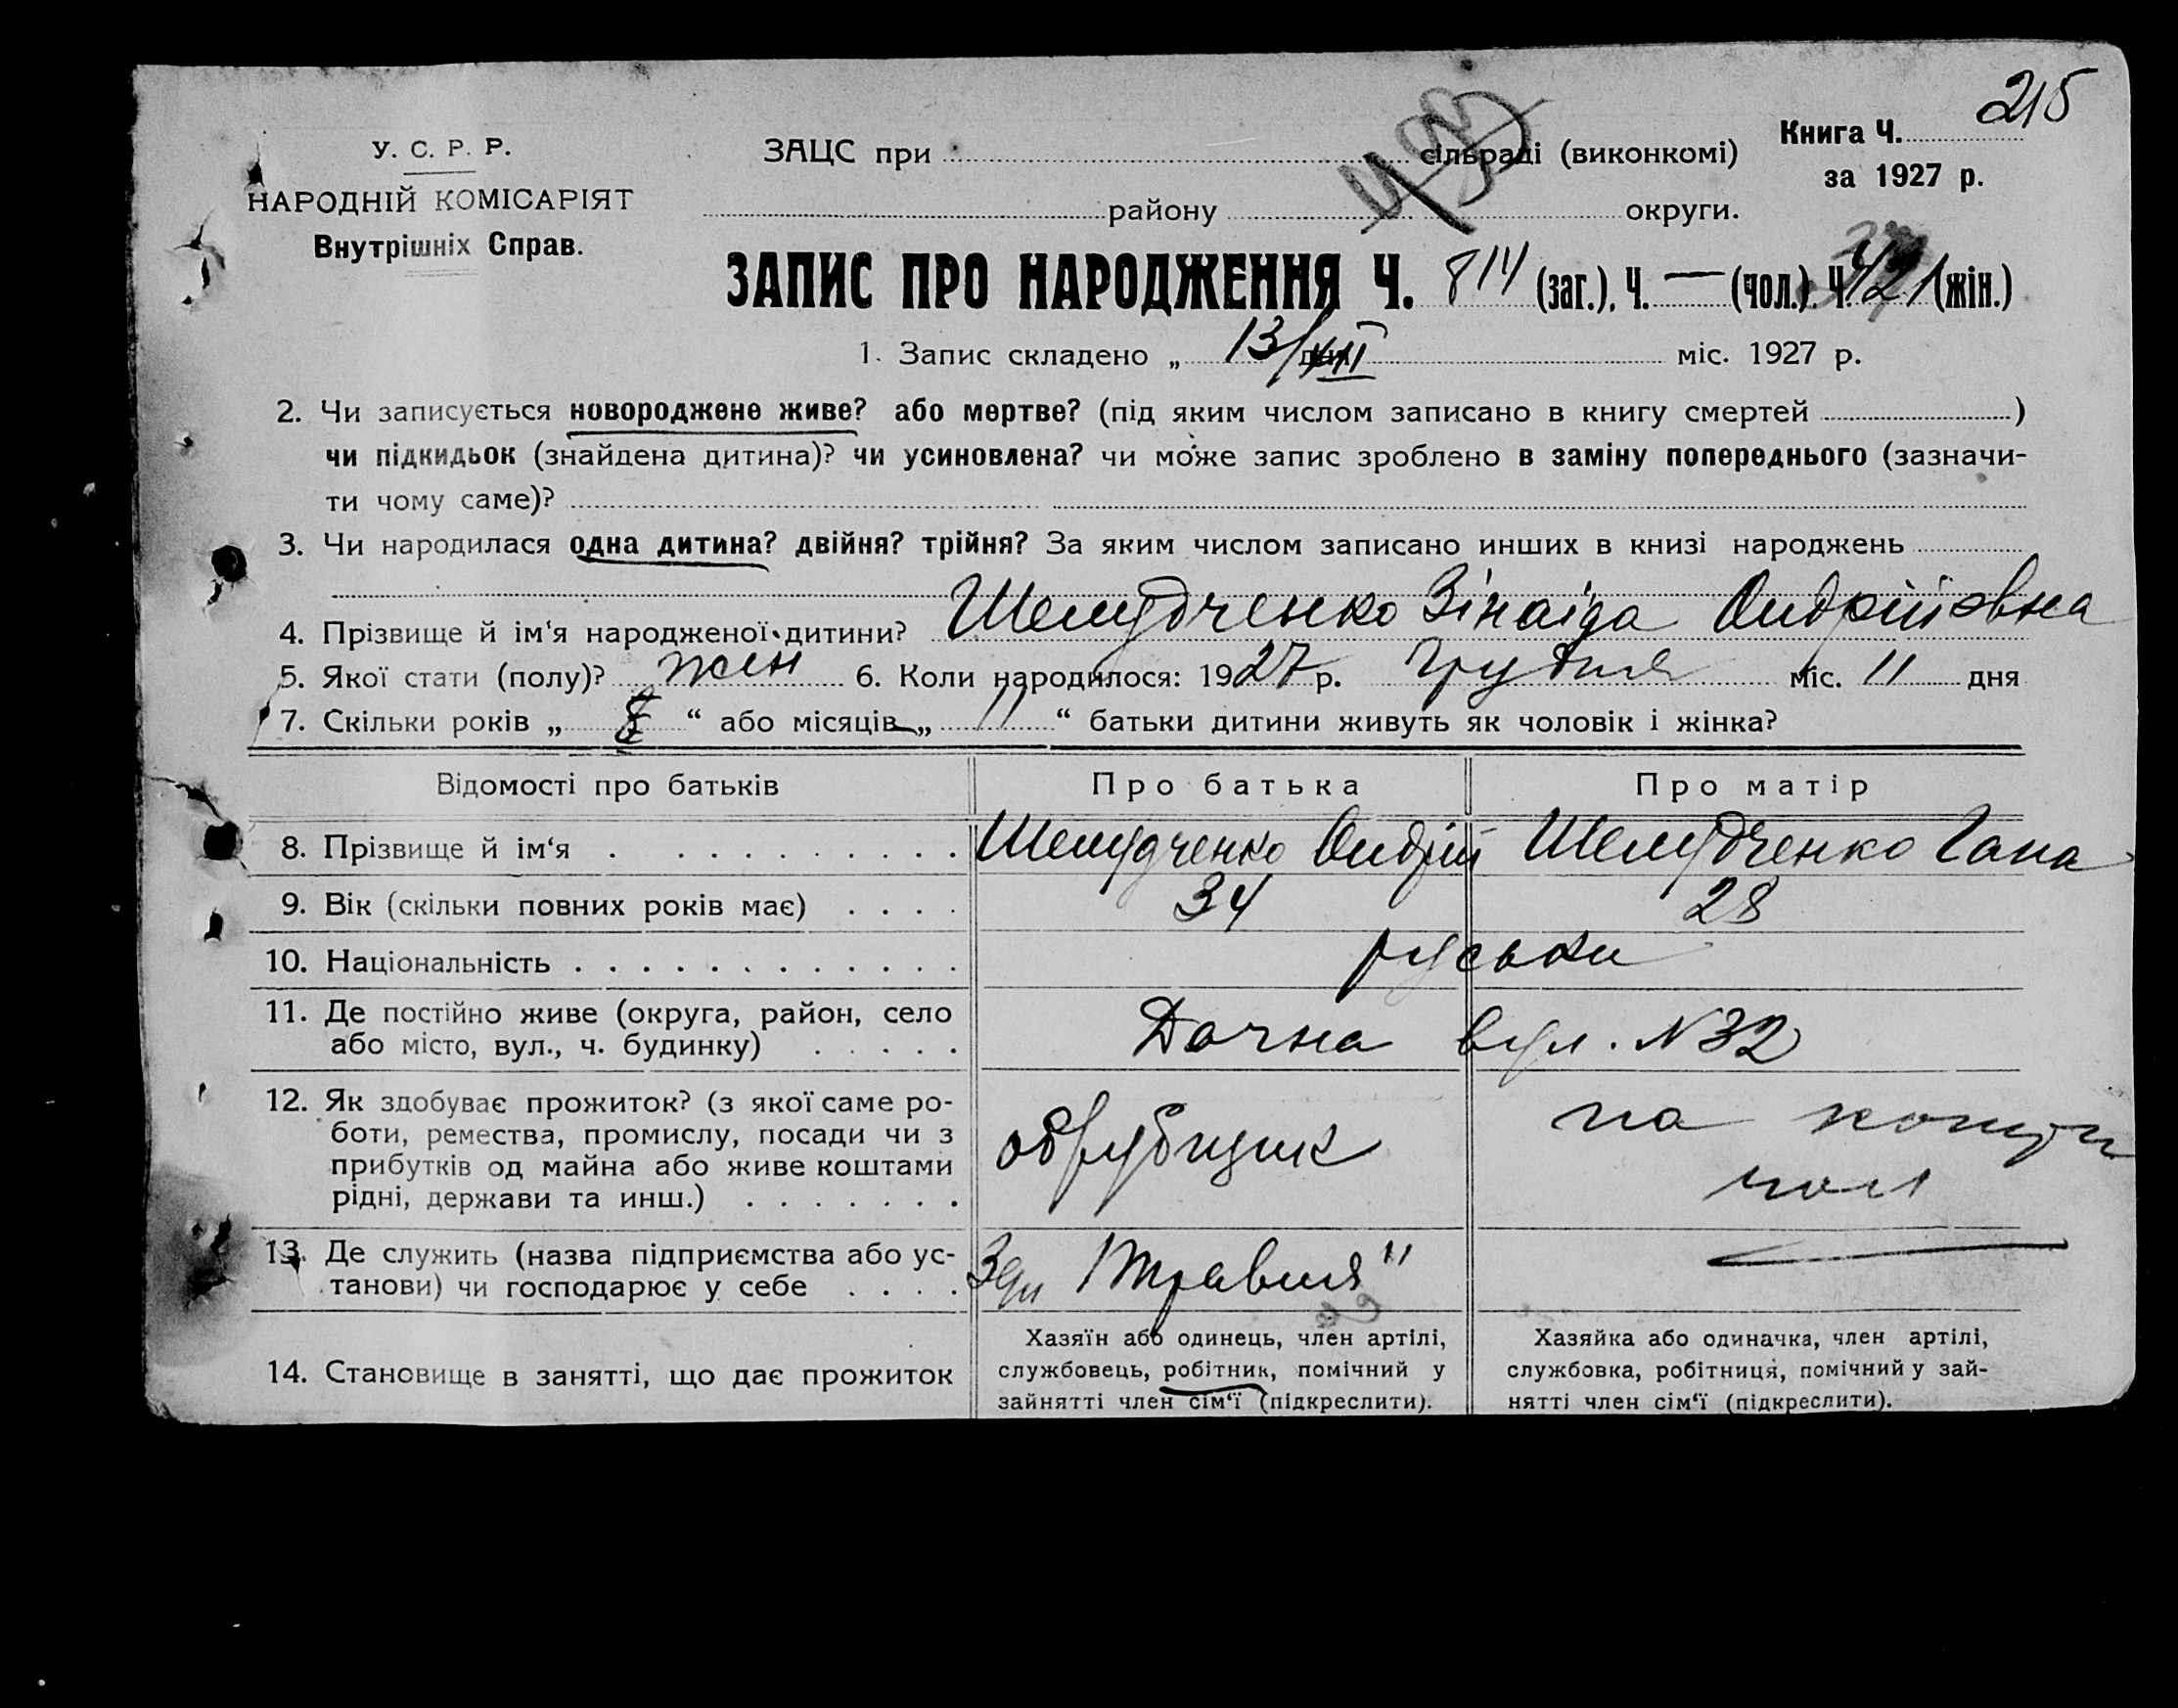 215
У. С. Р. Р.
НАРОДНІЙ КОМІСАРІЯТ
Внутрішніх Справ.
ЗАЦС при сільраді (виконкомі)
району округи.
Книга Ч.
за 1927 р.
ЗАПИС ПРО НАРОДЖЕННЯ Ч. 814 (заг.), Ч. — (чол.). Ч. 421 (жін.)
1. Запис складено „ 13/XII дня міс. 1927 р.
2. Чи записується новороджене живе? або мертве? (під яким числом записано в книгу смертей )
чи підкидьок (знайдена дитина)? чи усиновлена? чи може запис зроблено в заміну попереднього (зазначи-
ти чому саме)?
3. Чи народилася одна дитина? двійня? трійня? За яким числом записано инших в книзі народжень
4. Прізвище й ім'я народженої дитини? Шелудченко Зінаіда Андрійовна
5. Якої стати (полу)? жін 6. Коли народилося: 1927 р. Грудня міс. 11 дня
7. Скільки років „ “ або місяців „ 11 “ батьки дитини живуть як чоловік і жінка?
Відомості про батьків Про батька Про матір
8. Прізвище й ім‘я Шелудченко Андрій Шелудченко Гана
9. Вік (скільки повних років має) 34 28
10. Національність руськи
11. Де постійно живе (округа, район, село
або місто, вул., ч. будинку) Дачна вул. №32
12. Як здобуває прожиток? (з якої саме ро-
боти, ремества, промислу, посади чи з
прибутків од майна або живе коштами
рідні, держави та инш.) обрубщик на кошти чол
13. Де служить (назва підприємства або ус-
танови) чи господарює у себе 1 Травня"
14. Становище в занятті, що дає прожиток
Хазяїн або одинець, член артілі,
службовець, робітник, помічний у
зайнятті член сім‘ї (підкреслити).
Хазяйка або одиначка, член артілі,
службовка, робітниця, помічний у зай-
нятті член сім‘ї (підкреслити).